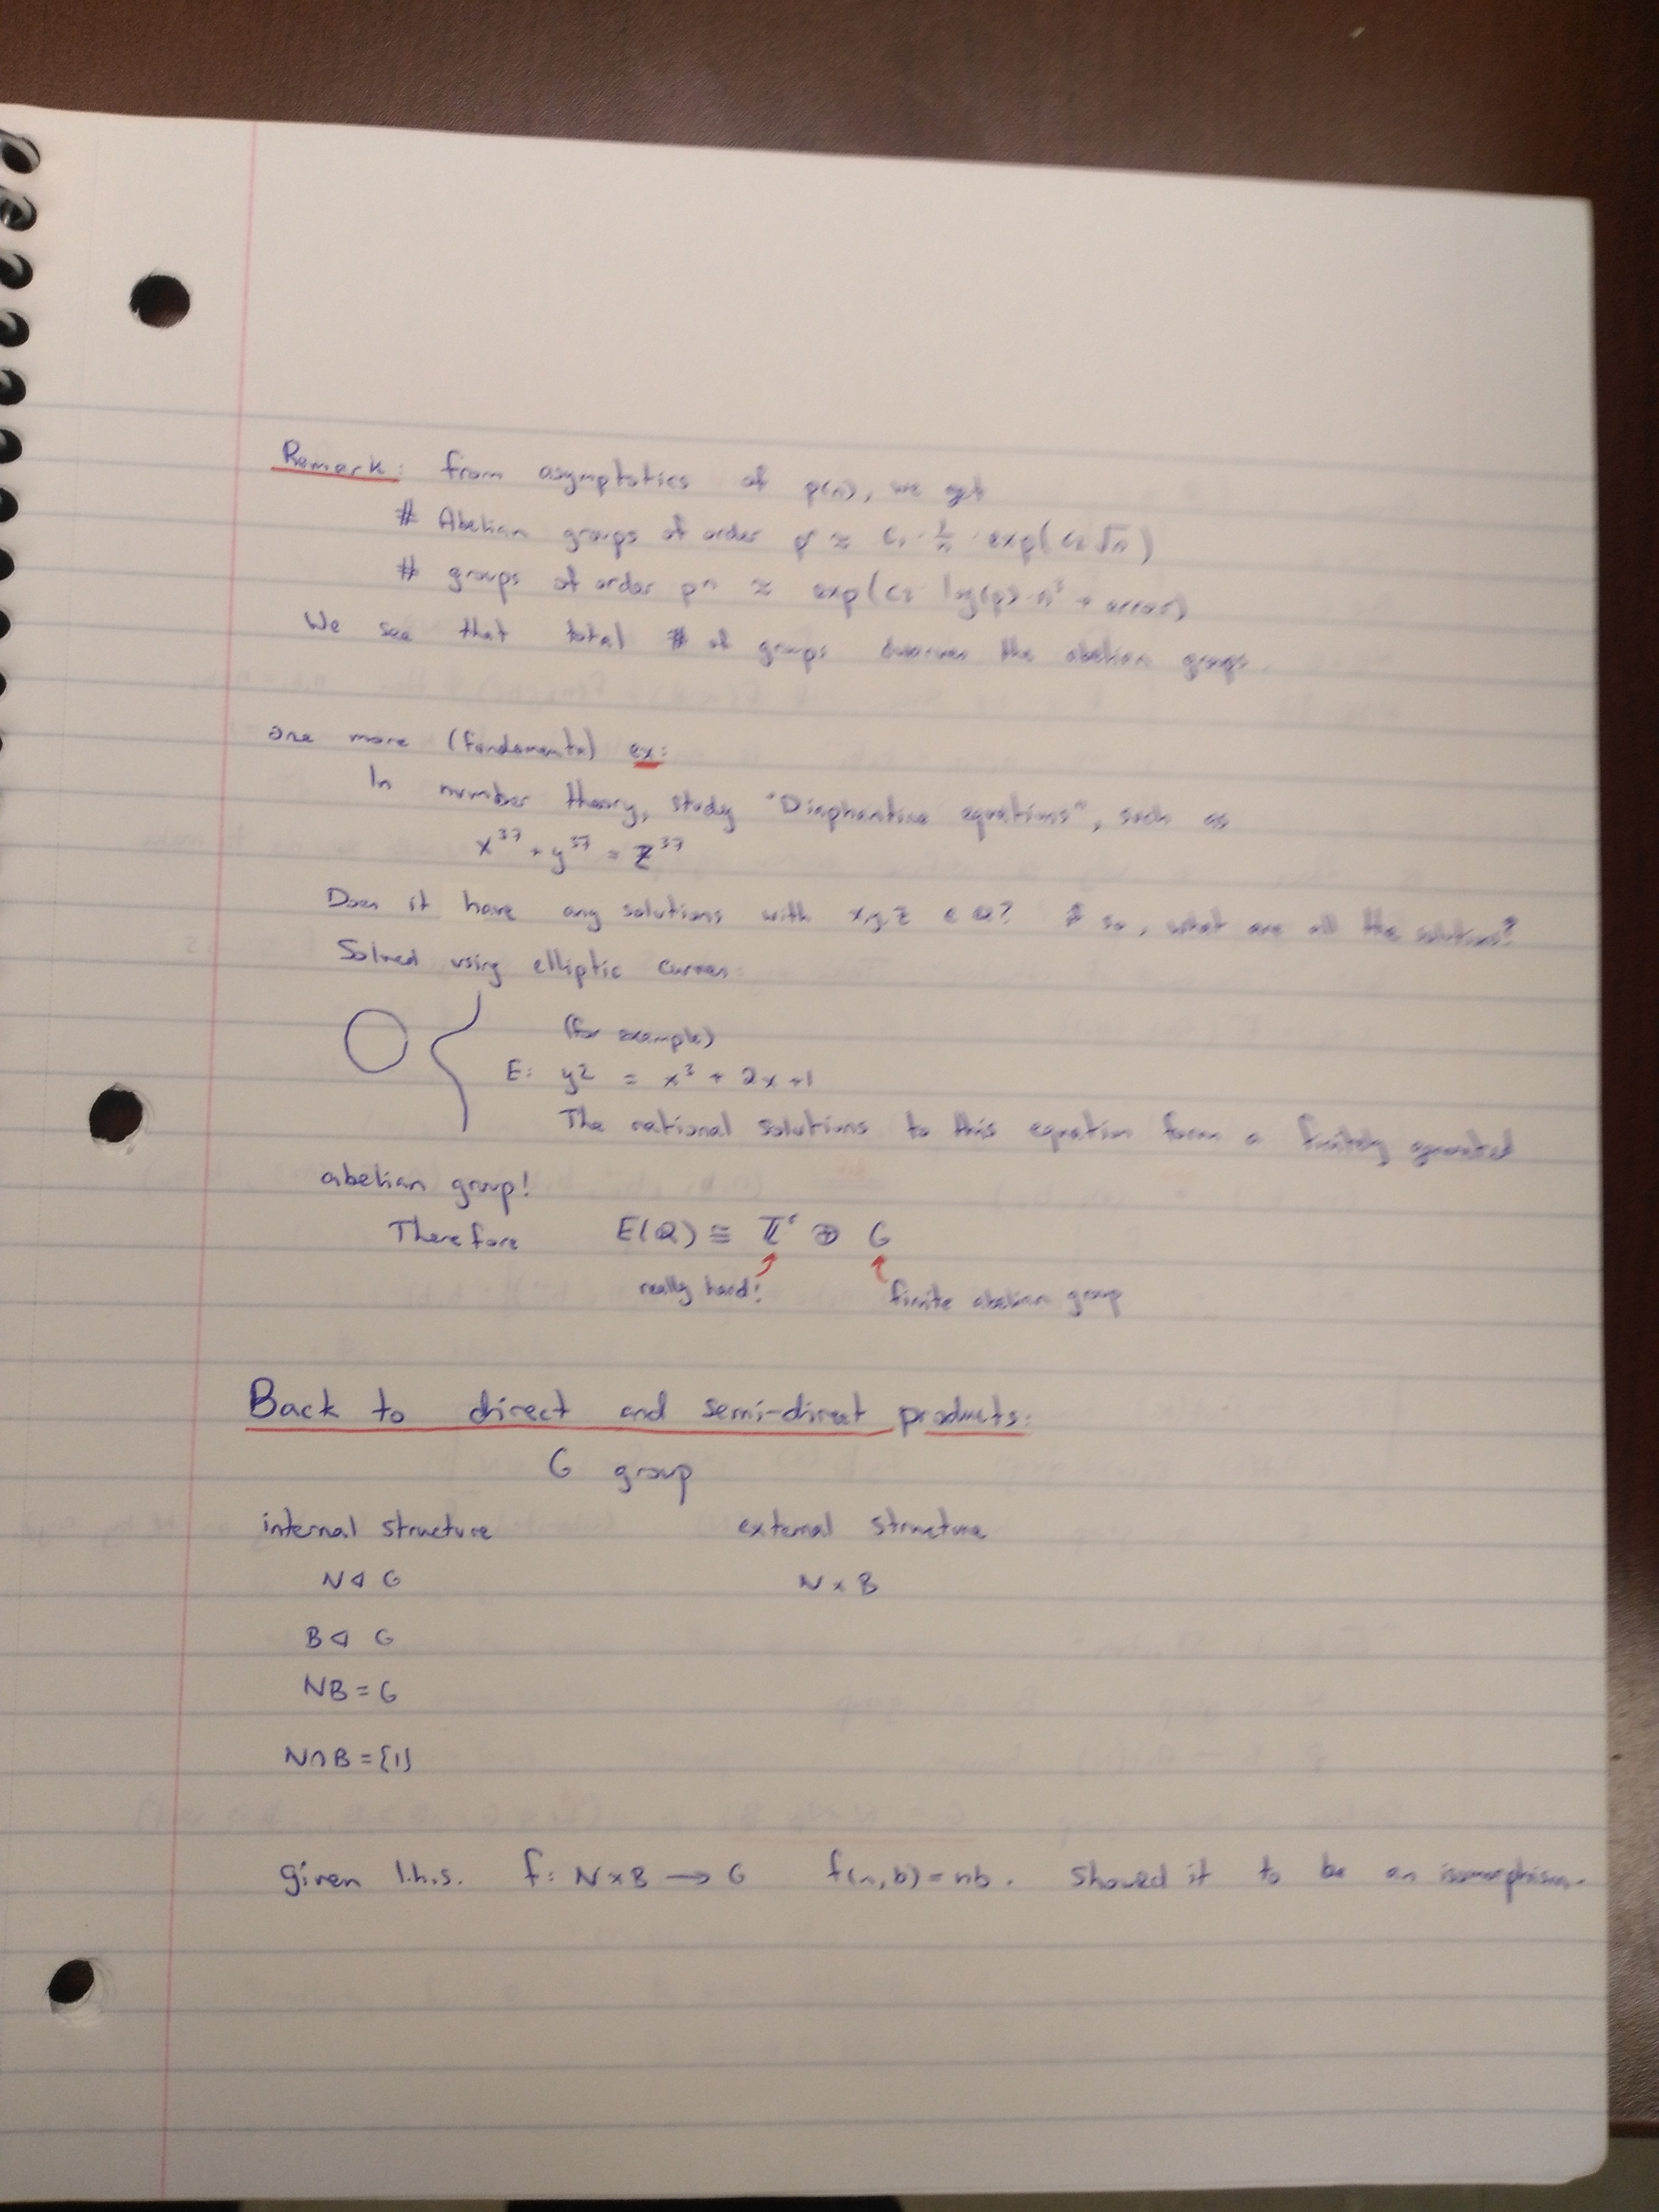 Remark: from asymptotics of p(n), we get
# Abelian groups of order pⁿ ≈ c₁ · 1/n · exp(c₂ √n)
# groups of order pⁿ ≈ exp(c₃ · log(p) · n³ + error)
We see that total # of groups dwarves the abelian groups.
one more (fundamental) ex:
In number theory, study "Diophantine equations", such as
x³⁷ + y³⁷ = z³⁷
Does it have any solutions with x,y,z ∈ Q? If so, what are all the solutions?
Solved using elliptic curves:
(for example)
E: y² = x³ + 2x + 1
The rational solutions to this equation form a finitely generated
abelian group!
Therefore E(Q) ≅ ℤʳ ⊕ G
really hard! finite abelian group
Back to direct and semi-direct products:
G group
internal structure external structure
N ◁ G N × B
B ◁ G
NB = G
N∩B = {1}
given l.h.s. f: N×B → G f(n,b) = nb. Showed it to be an isomorphism.